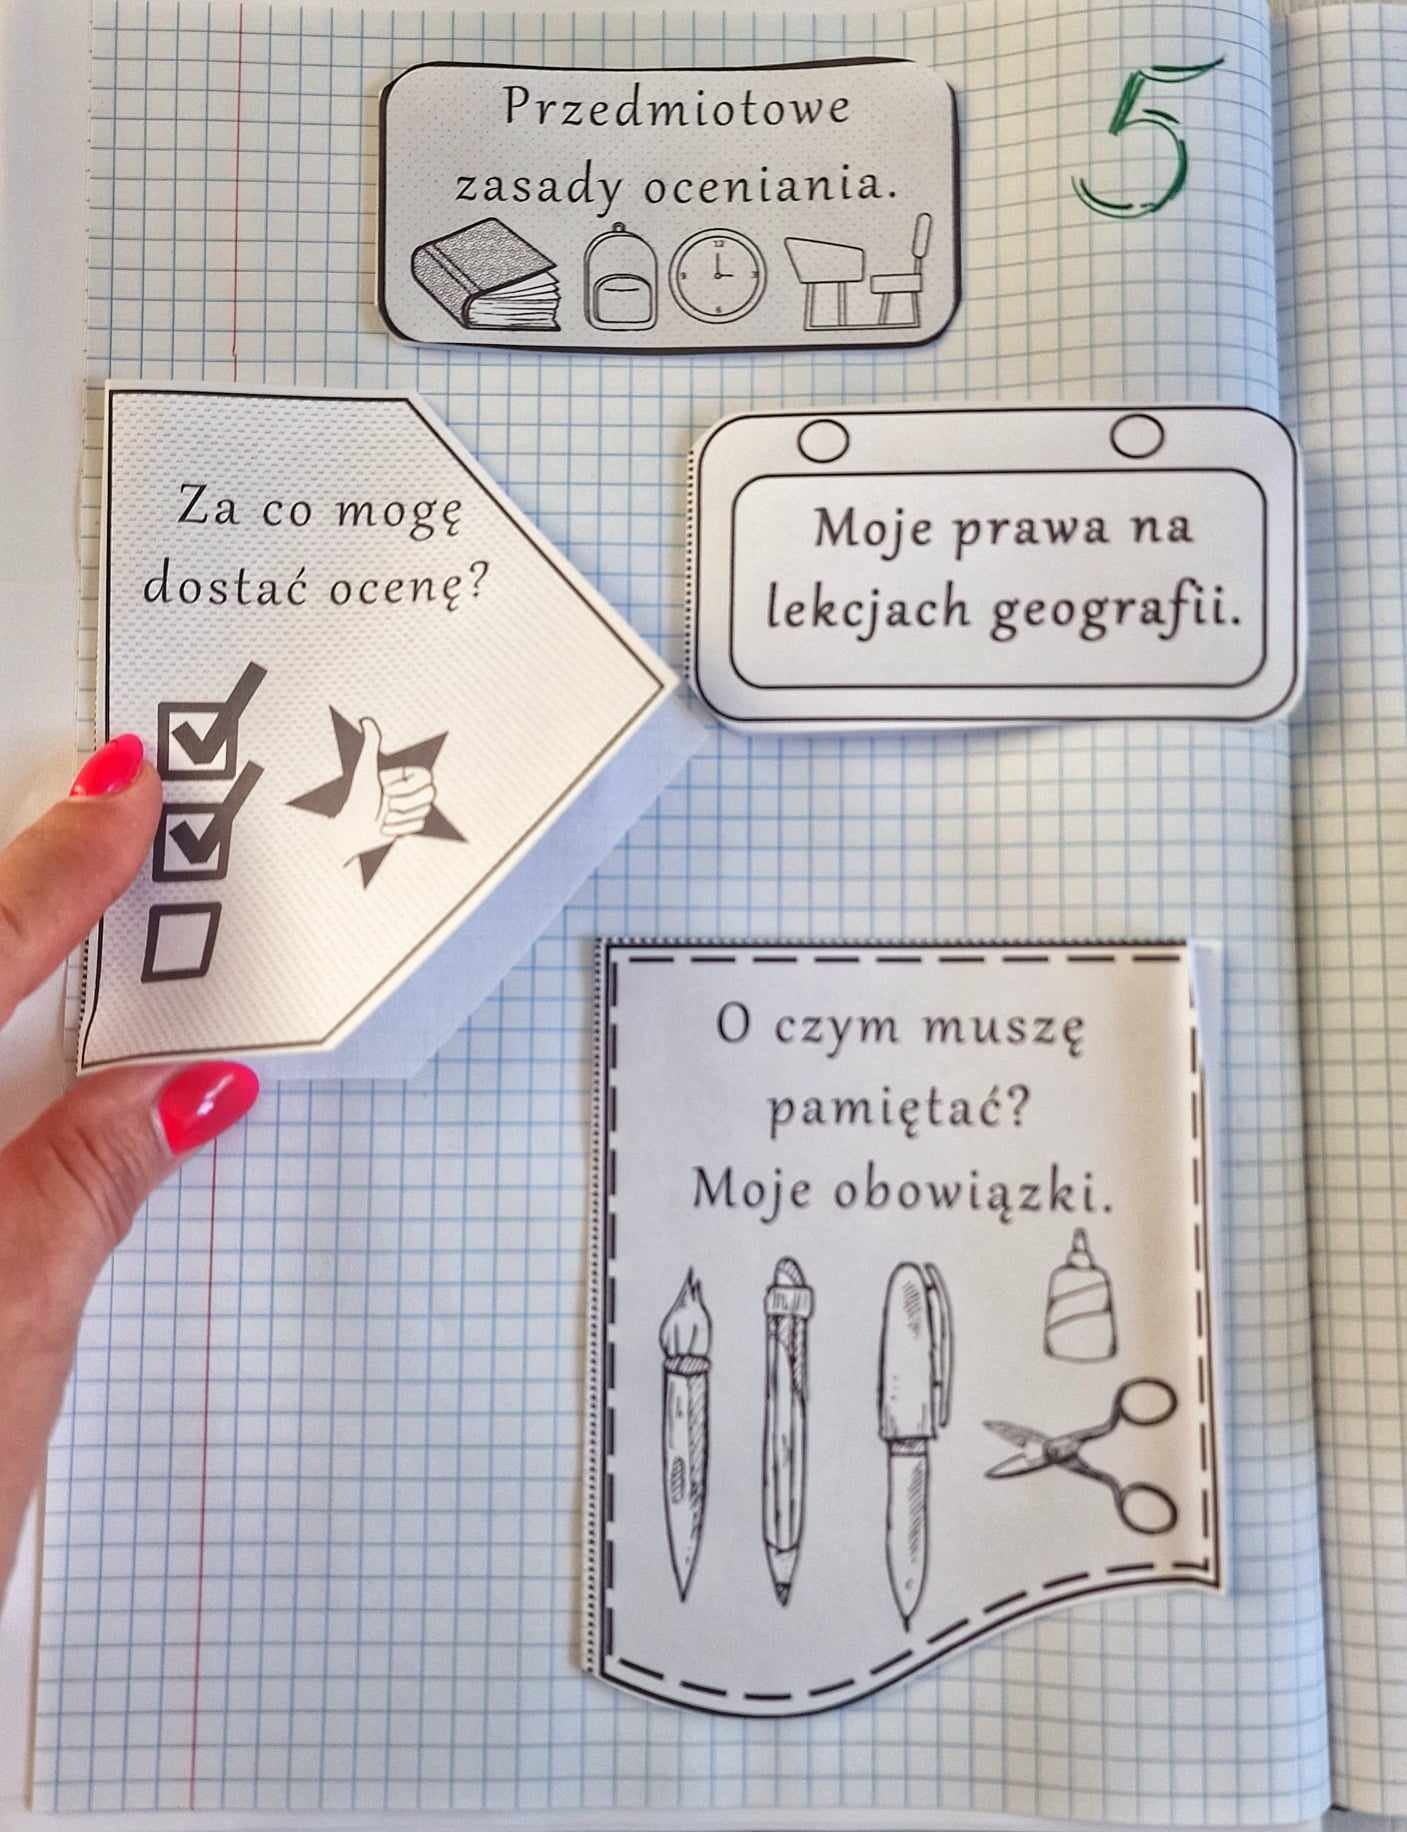 Przedmiotowe
zasady oceniania.
5
Za co mogę
dostać ocenę?
Moje prawa na
lekcjach geografii.
O czym muszę
pamiętać?
Moje obowiązki.